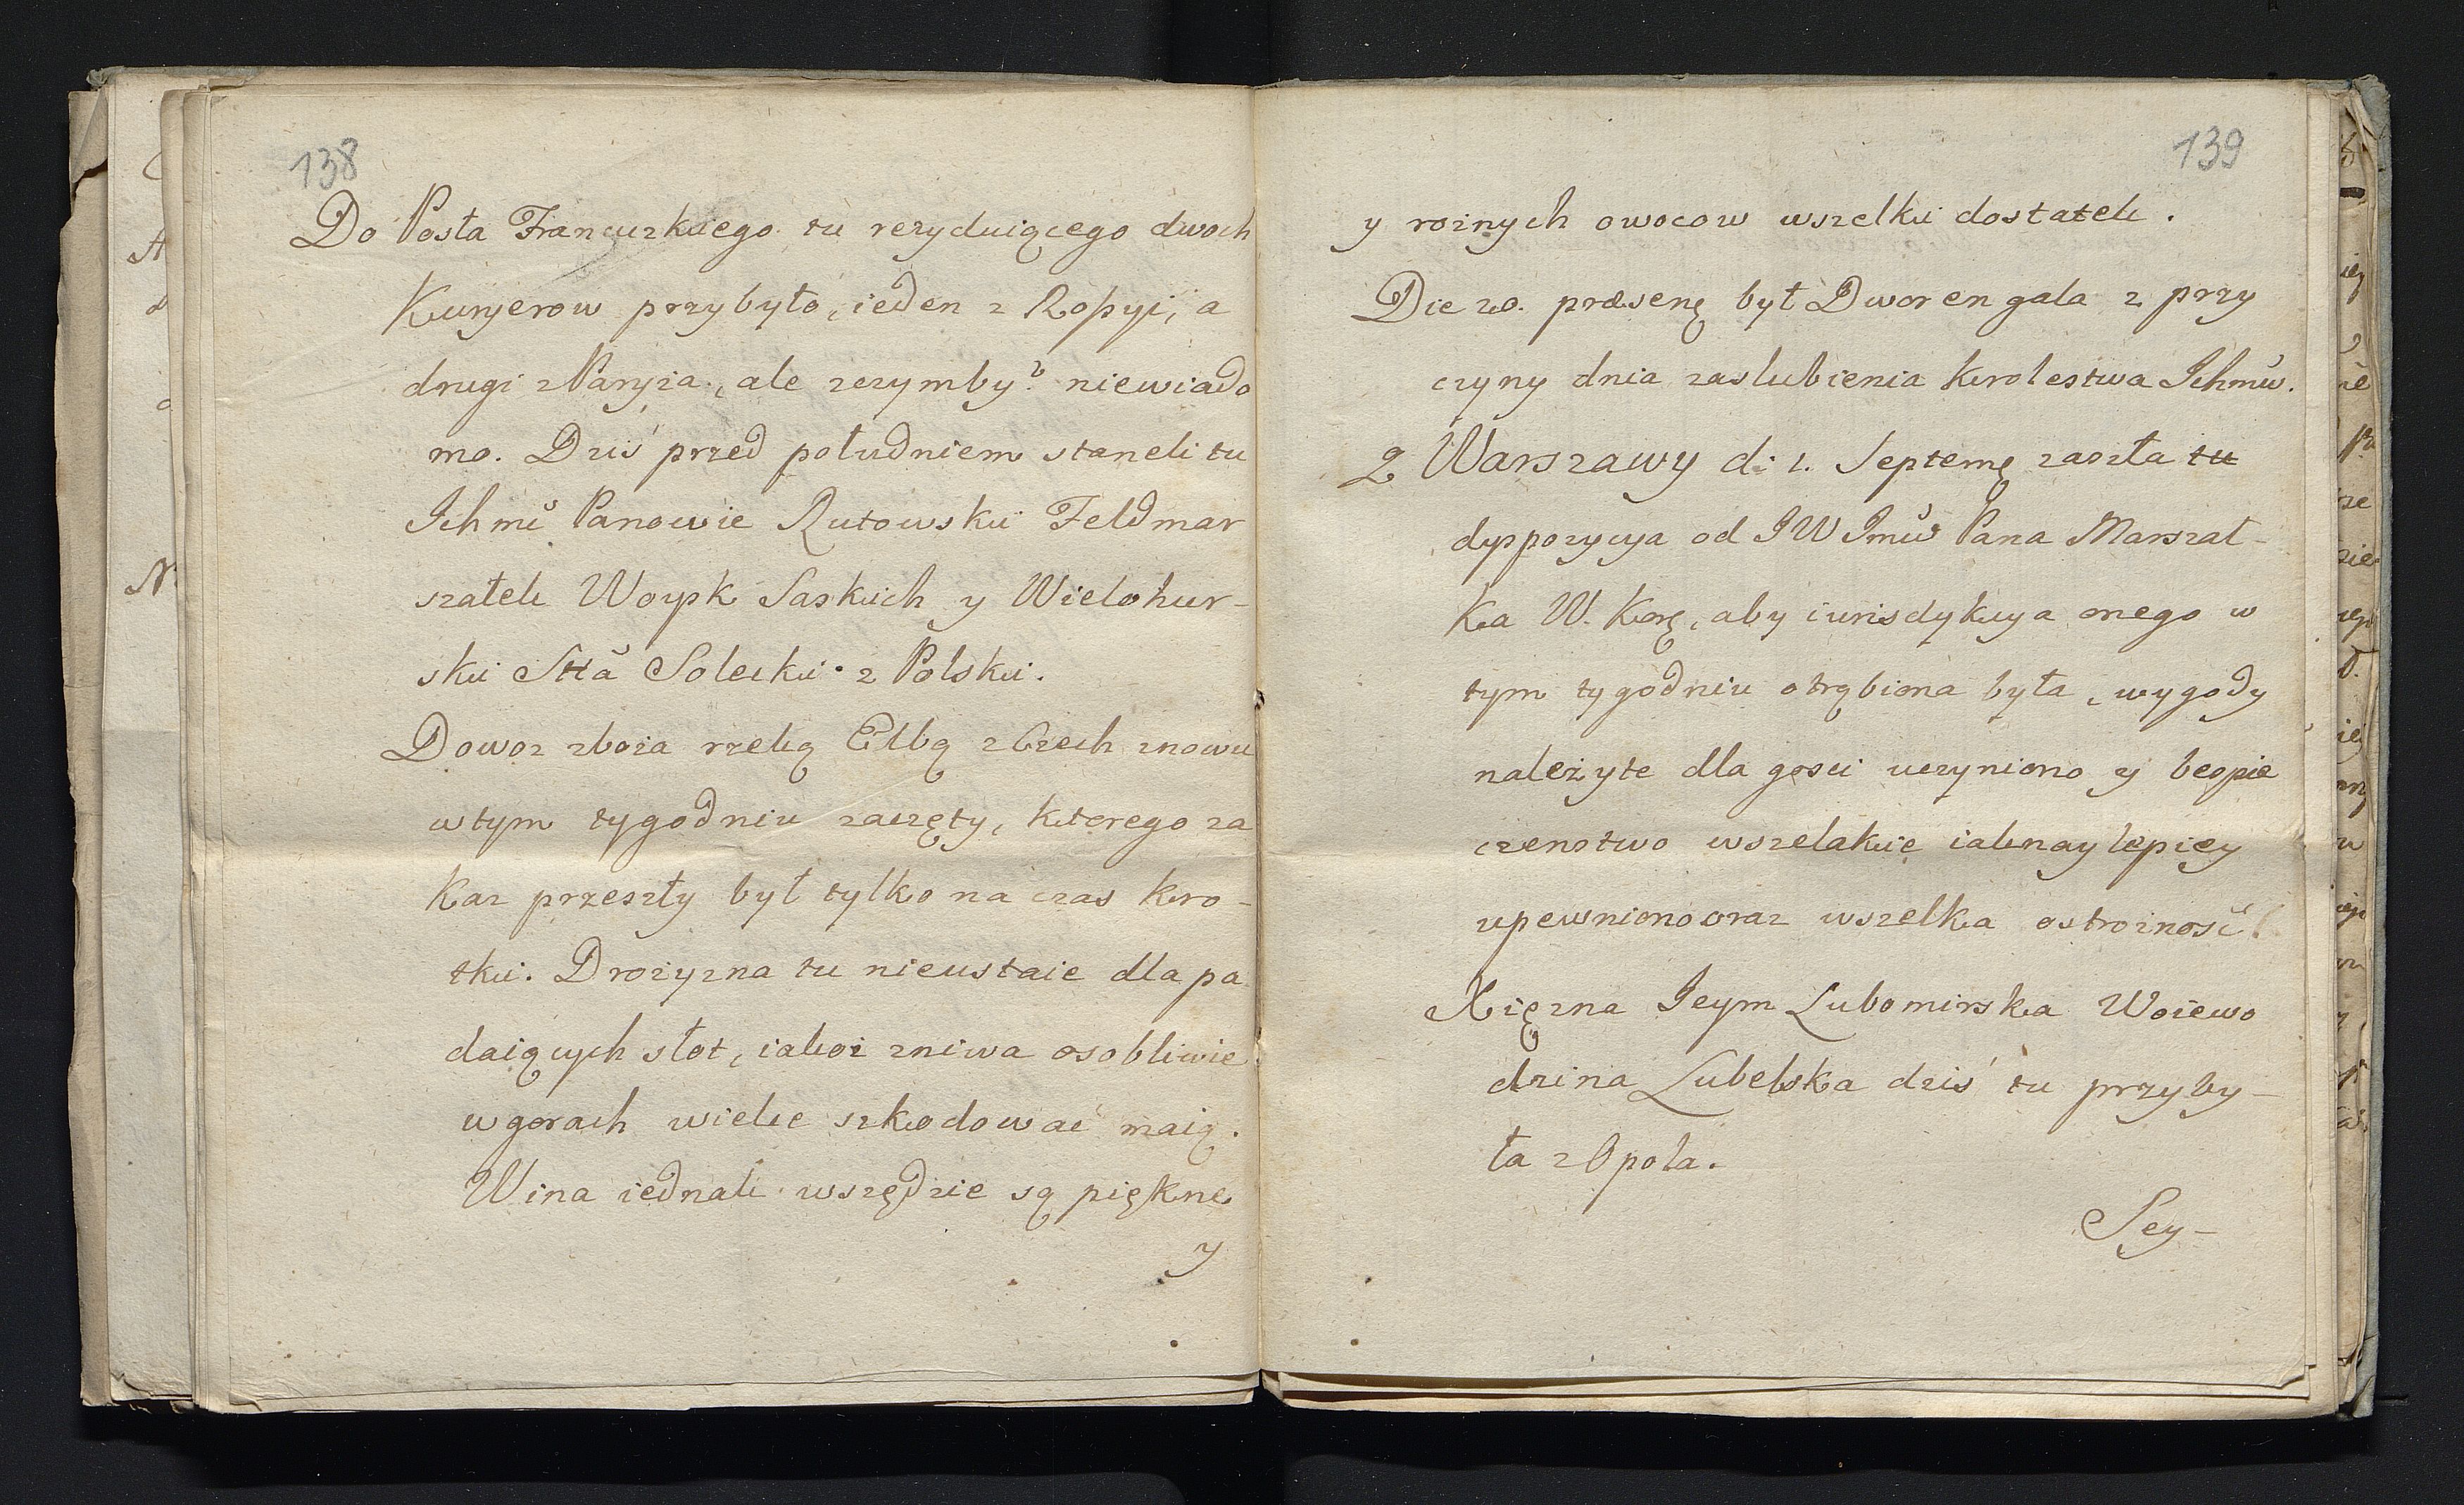 138
Do Posła Francuzkiego tu rezyduiącego dwoch
Kuryerow przybyło, ieden z Roßyi, a
drugi z Paryża, ale z czymby? niewiado
mo. Dziś przed południem staneli tu
Ichmć Panowie Rutowski Feldmar
szałek Woysk Saskich y Wielohur-
ski Stta Solecki z Polski.
Dowoz zboża rzeką Elbą z Czech znowu
w tym tygodniu zaczęty, ktorego za
kaz przeszły był tylko na czas kro-
tki. Drożyzna tu nieustaie dla pa
daiących słot, iakoż zniwa osobliwie
w gorach wiele szkodować maią.
Wina iednak wszędzie są piękne
y
139
y rożnych owocow wszelki dostatek.
Die 20. præsenę był Dwor en gala z przy
czyny dnia zaslubienia krolestwa Ichmćw.
Z Warszawy d: 1. Septemę zaszła tu
dyspozycya od JW Jmći Pana Marszał-
ka W. Korę, aby iurisdykcya onego w
tym tygodniu otrąbiona była, wygody
należyte dla gosci uczyniono y bespie
czenstwo wszelakie iaknaylepiey
upewniono oraz wszelka ostrożność
Xiężna Jeym Lubomirska Woiewo
dzina Lubelska dziś tu przyby-
ła z Opola.
Sey-